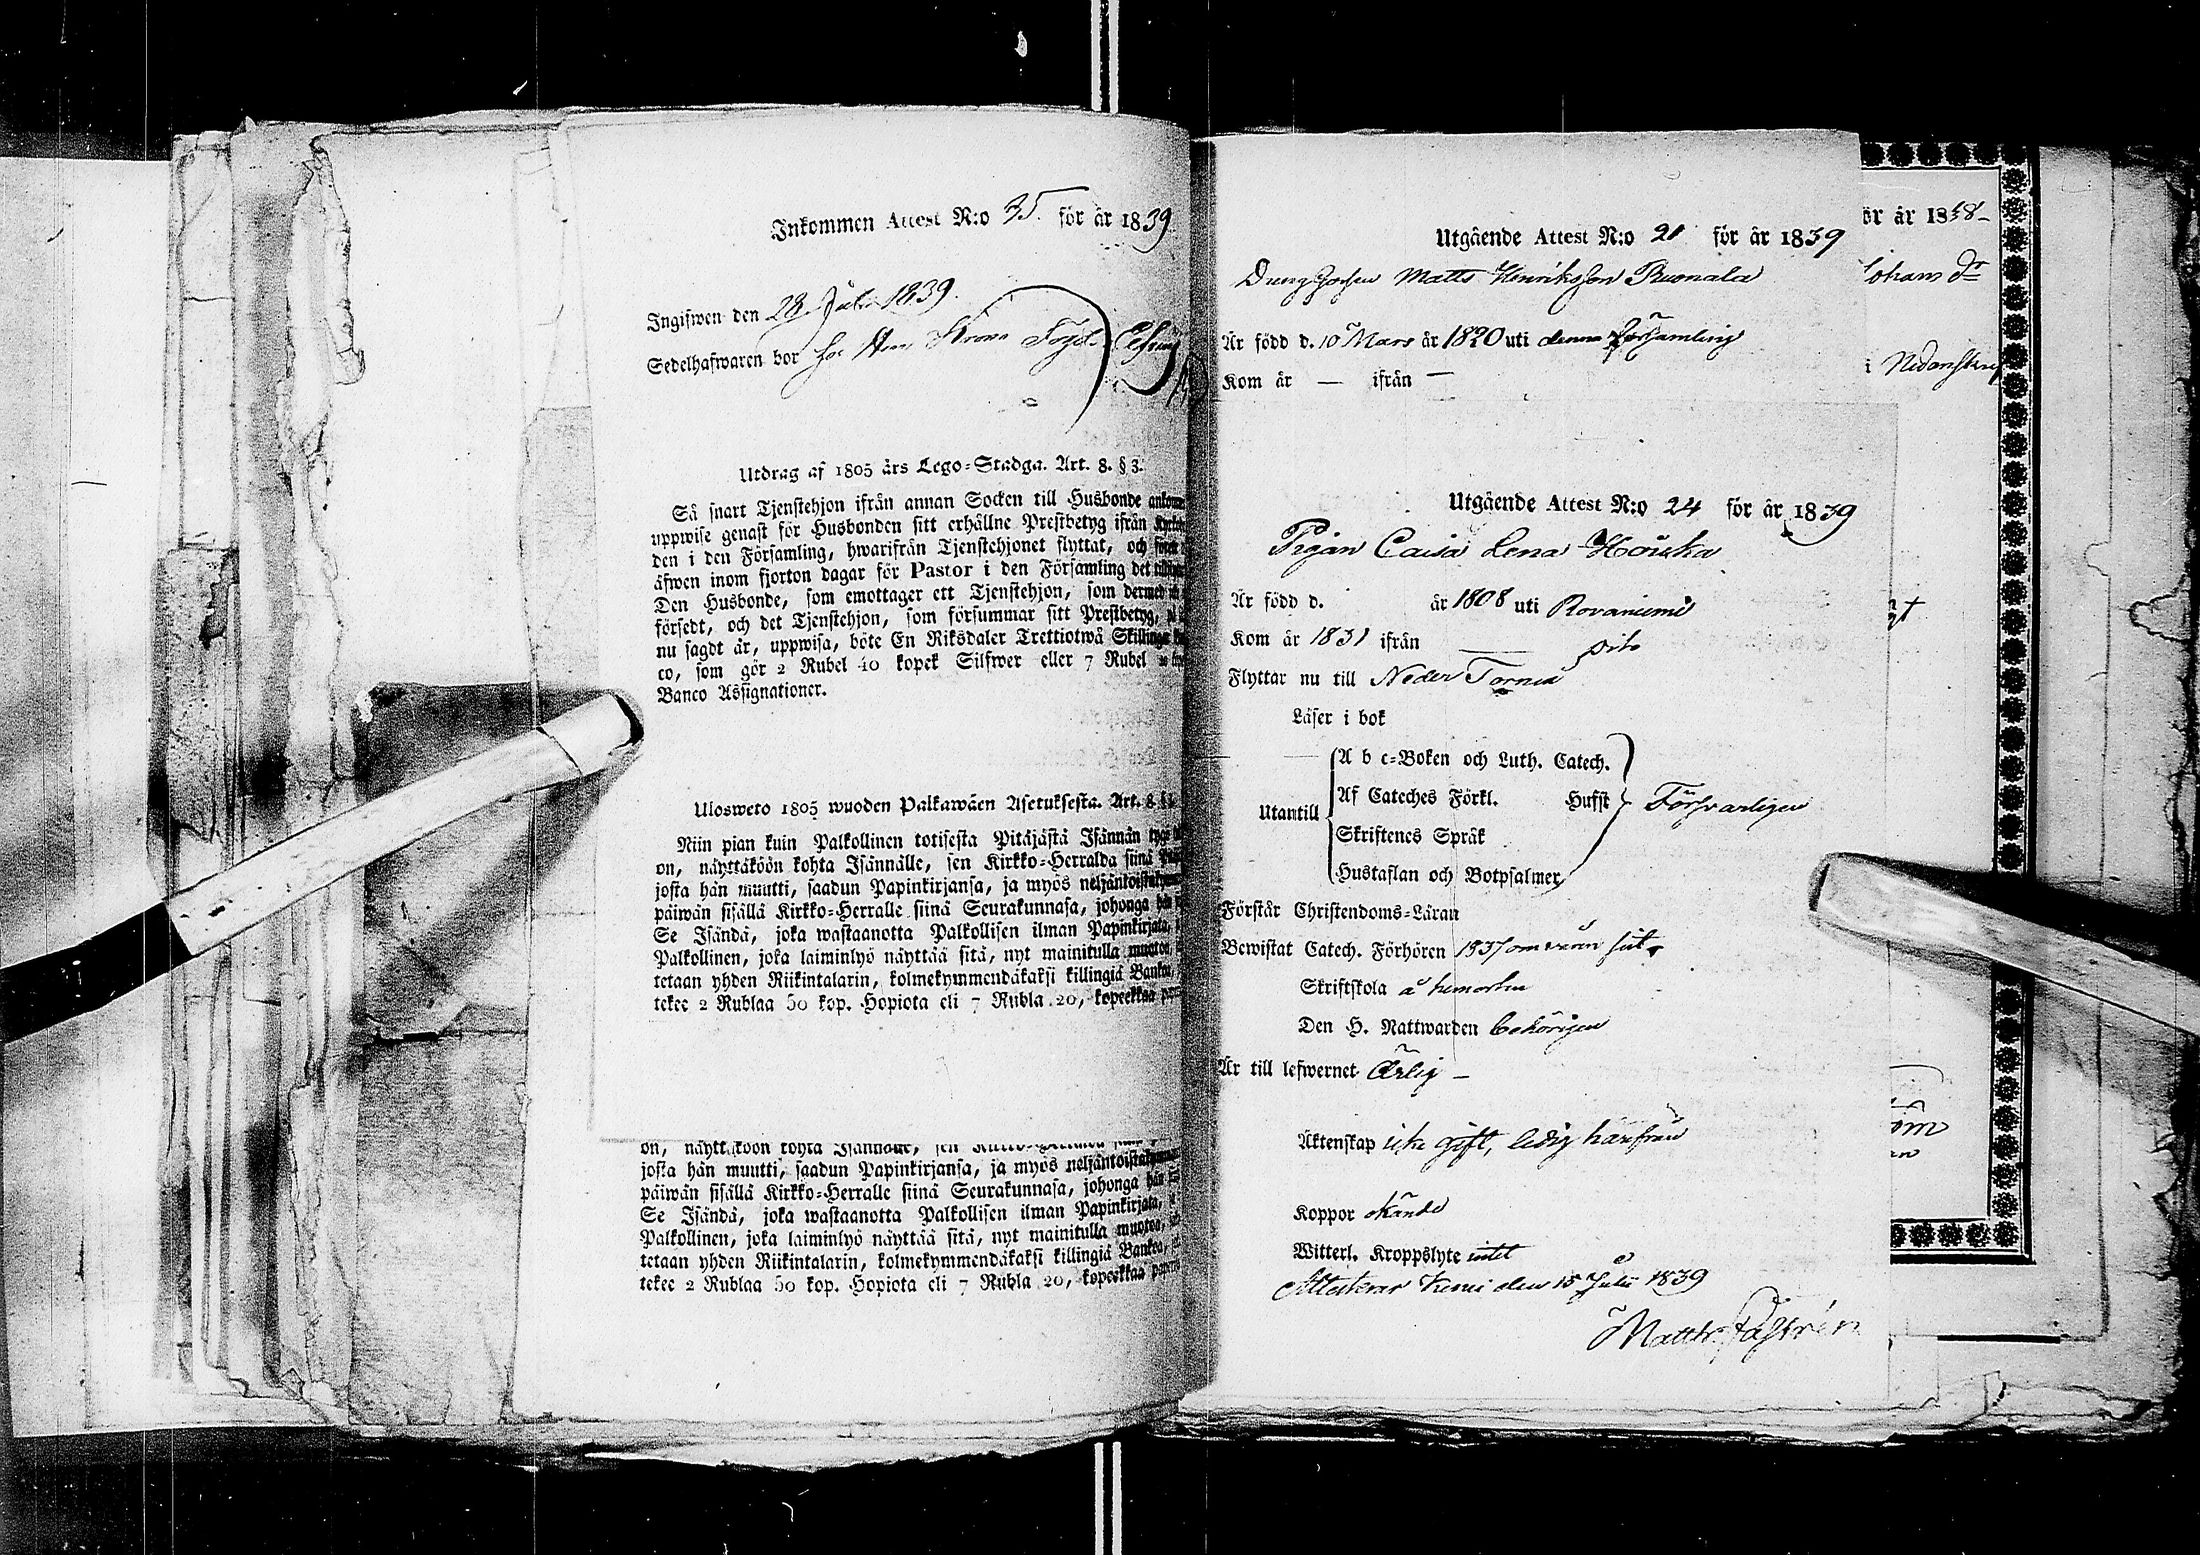 Inkommen Attest N:o 35. för år 1839
Ingifwen den 28 Juli 1839.
Sedelhafwaren bor hos Herr Krono Fogd.
Utdrag af 1805 års Lego=Stadga. Art. 8. § 3.
Så snart Tjenstehjon ifrån annan Socken till Husbonde
uppwise genast för Husbonden sitt erhållne Prestbetyg ifrån
den i den Församling, hwarifrån Tjenstehjonet flyttat, och
äfwen inom fjorton dagar för Pastor i den Församling det
Den Husbonde, som emottager ett Tjenstehjon, som dermed
försedt, och det Tjenstehjon, som försummar sitt Prestbetyg,
nu sagdt är, uppwisa, böte En Riksdaler Trettiotwå Skillingar
co, som gör 2 Rubel 40 kopek Silfwer eller 7 Rubel
Banco Assignationer.
Ulosweto 1805 wuoden Palkawäen Asetuksesta. Art. 8. §
Niin pian kuin Palkollinen totisesta Pitäjästä Isännän tygö
on, näyttäköön kohta Isännälle, sen Kirkko=Herralda siinä
josta hän muutti, saadun Papinkirjansa, ja myös
päiwän sisällä Kirkko=Herralle siinä Seurakunnasa, johonga hän
Se Isändä, joka wastaanotta Palkollisen ilman Papinkirjata,
Palkollinen, joka laiminlyö näyttää sitä, nyt mainitulla muotoa,
tetaan yhden Riikintalarin, kolmekymmendäkaksi killingiä Bankoa,
tekee 2 Rublaa 50 kop. Hopiota eli 7 Rubla 20, kopeekkaa
josta hän muutti, saadun Papinkirjansa, ja myös
päiwän sisällä Kirkko=Herralle siinä Seurakunnasa, johonga hän
Se Isändä, joka wastaanotta Palkollisen ilman Papinkirjata,
Palkollinen, joka laiminlyö näyttää sitä, nyt mainitulla muotoa,
tetaan yhden Riikintalarin, kolmekymmendäkaksi killingiä Bankoa,
tekee 2 Rublaa 50 kop. Hopiota eli 7 Rubla 20, kopeekkaa
Utgående Attest N:o 21 för år 1839
Matts Henriksson Ruonala
Är född d. 10 Mars år 1820 uti denna församling
Kom år — ifrån —
Utgående Attest N:o 24 för år 1839
Pigan Caisa Lena
Är född d. år 1808 uti Rovaniemi
Kom år 1831 ifrån dito
Flyttar nu till Neder Torneå
Läser i bok
Utantill
A b c=Boken och Luth. Catech.
Af Cateches Förkl. Hufst
Skriftenes Språk
Hustaflan och Botpsalmer
Försvarligen
Förstår Christendoms=Läran
Bewistat Catech. Förhören 1837 om våren
Skriftskola
Den H. Nattwarden behörigen
Är till lefwernet Ärlig —
Äktenskap icke gift, ledig härifrån
Koppor okände
Witterl. Kroppslyte intet
Attesterar Kemi den 15 Juli 1839
Matth. Castrén
ör år 1838
Johans dr
i